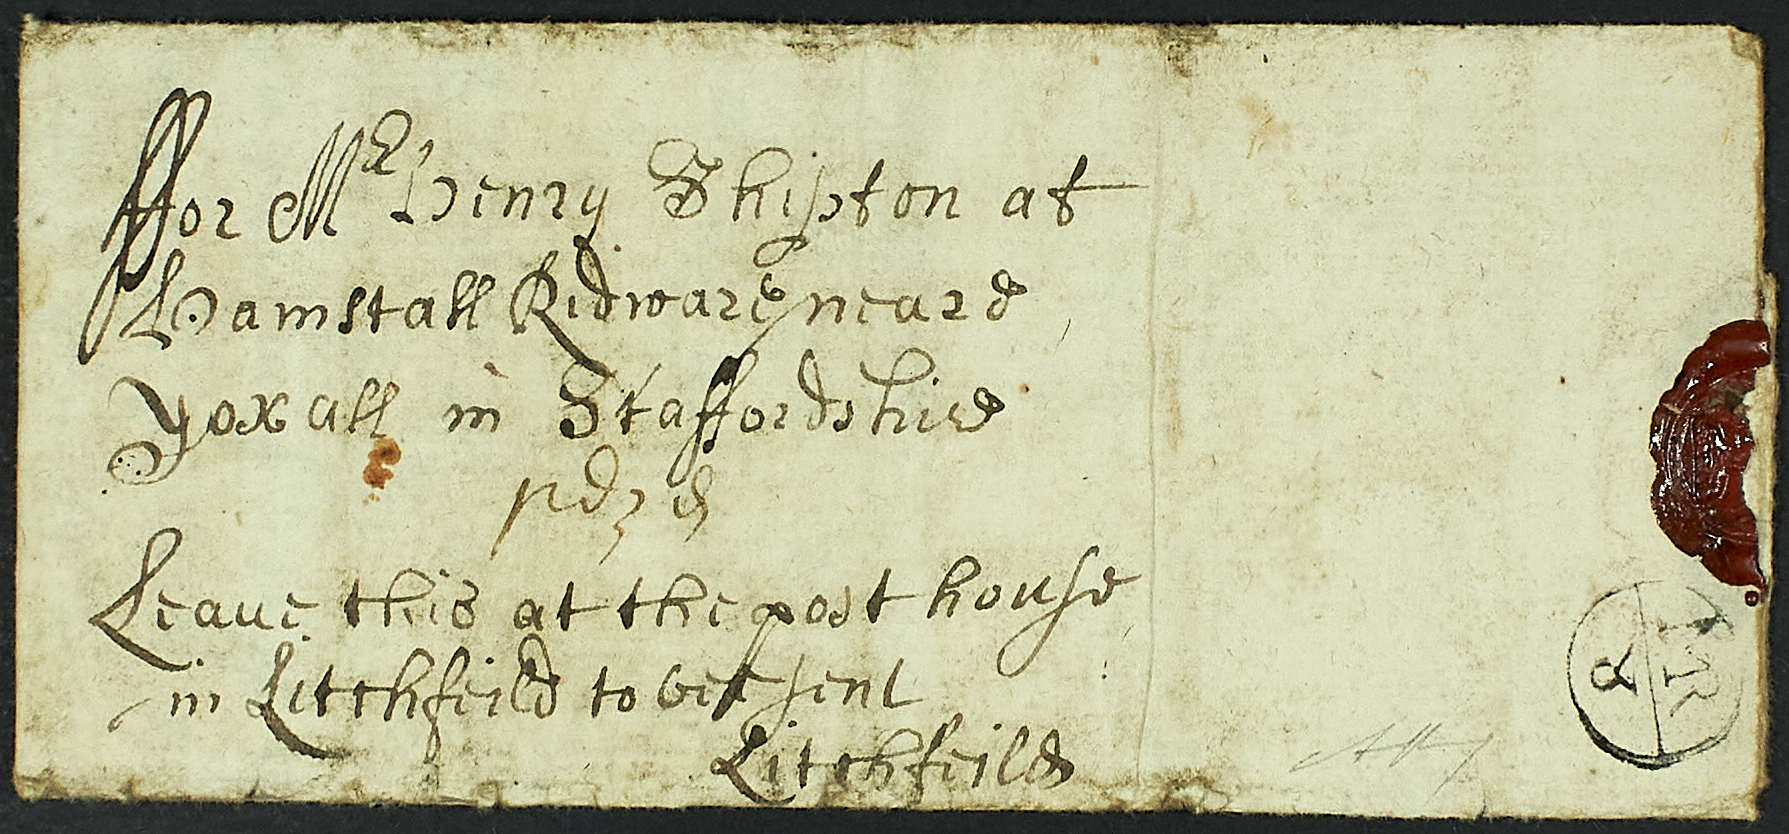 ffor Mr Henry Shipton at
Hamstall Ridware neare
Yoxall in Staffordshire
pd 3d
Leave this at the post house
in Litchfeild to bee sent
Litchfeild
MR
8